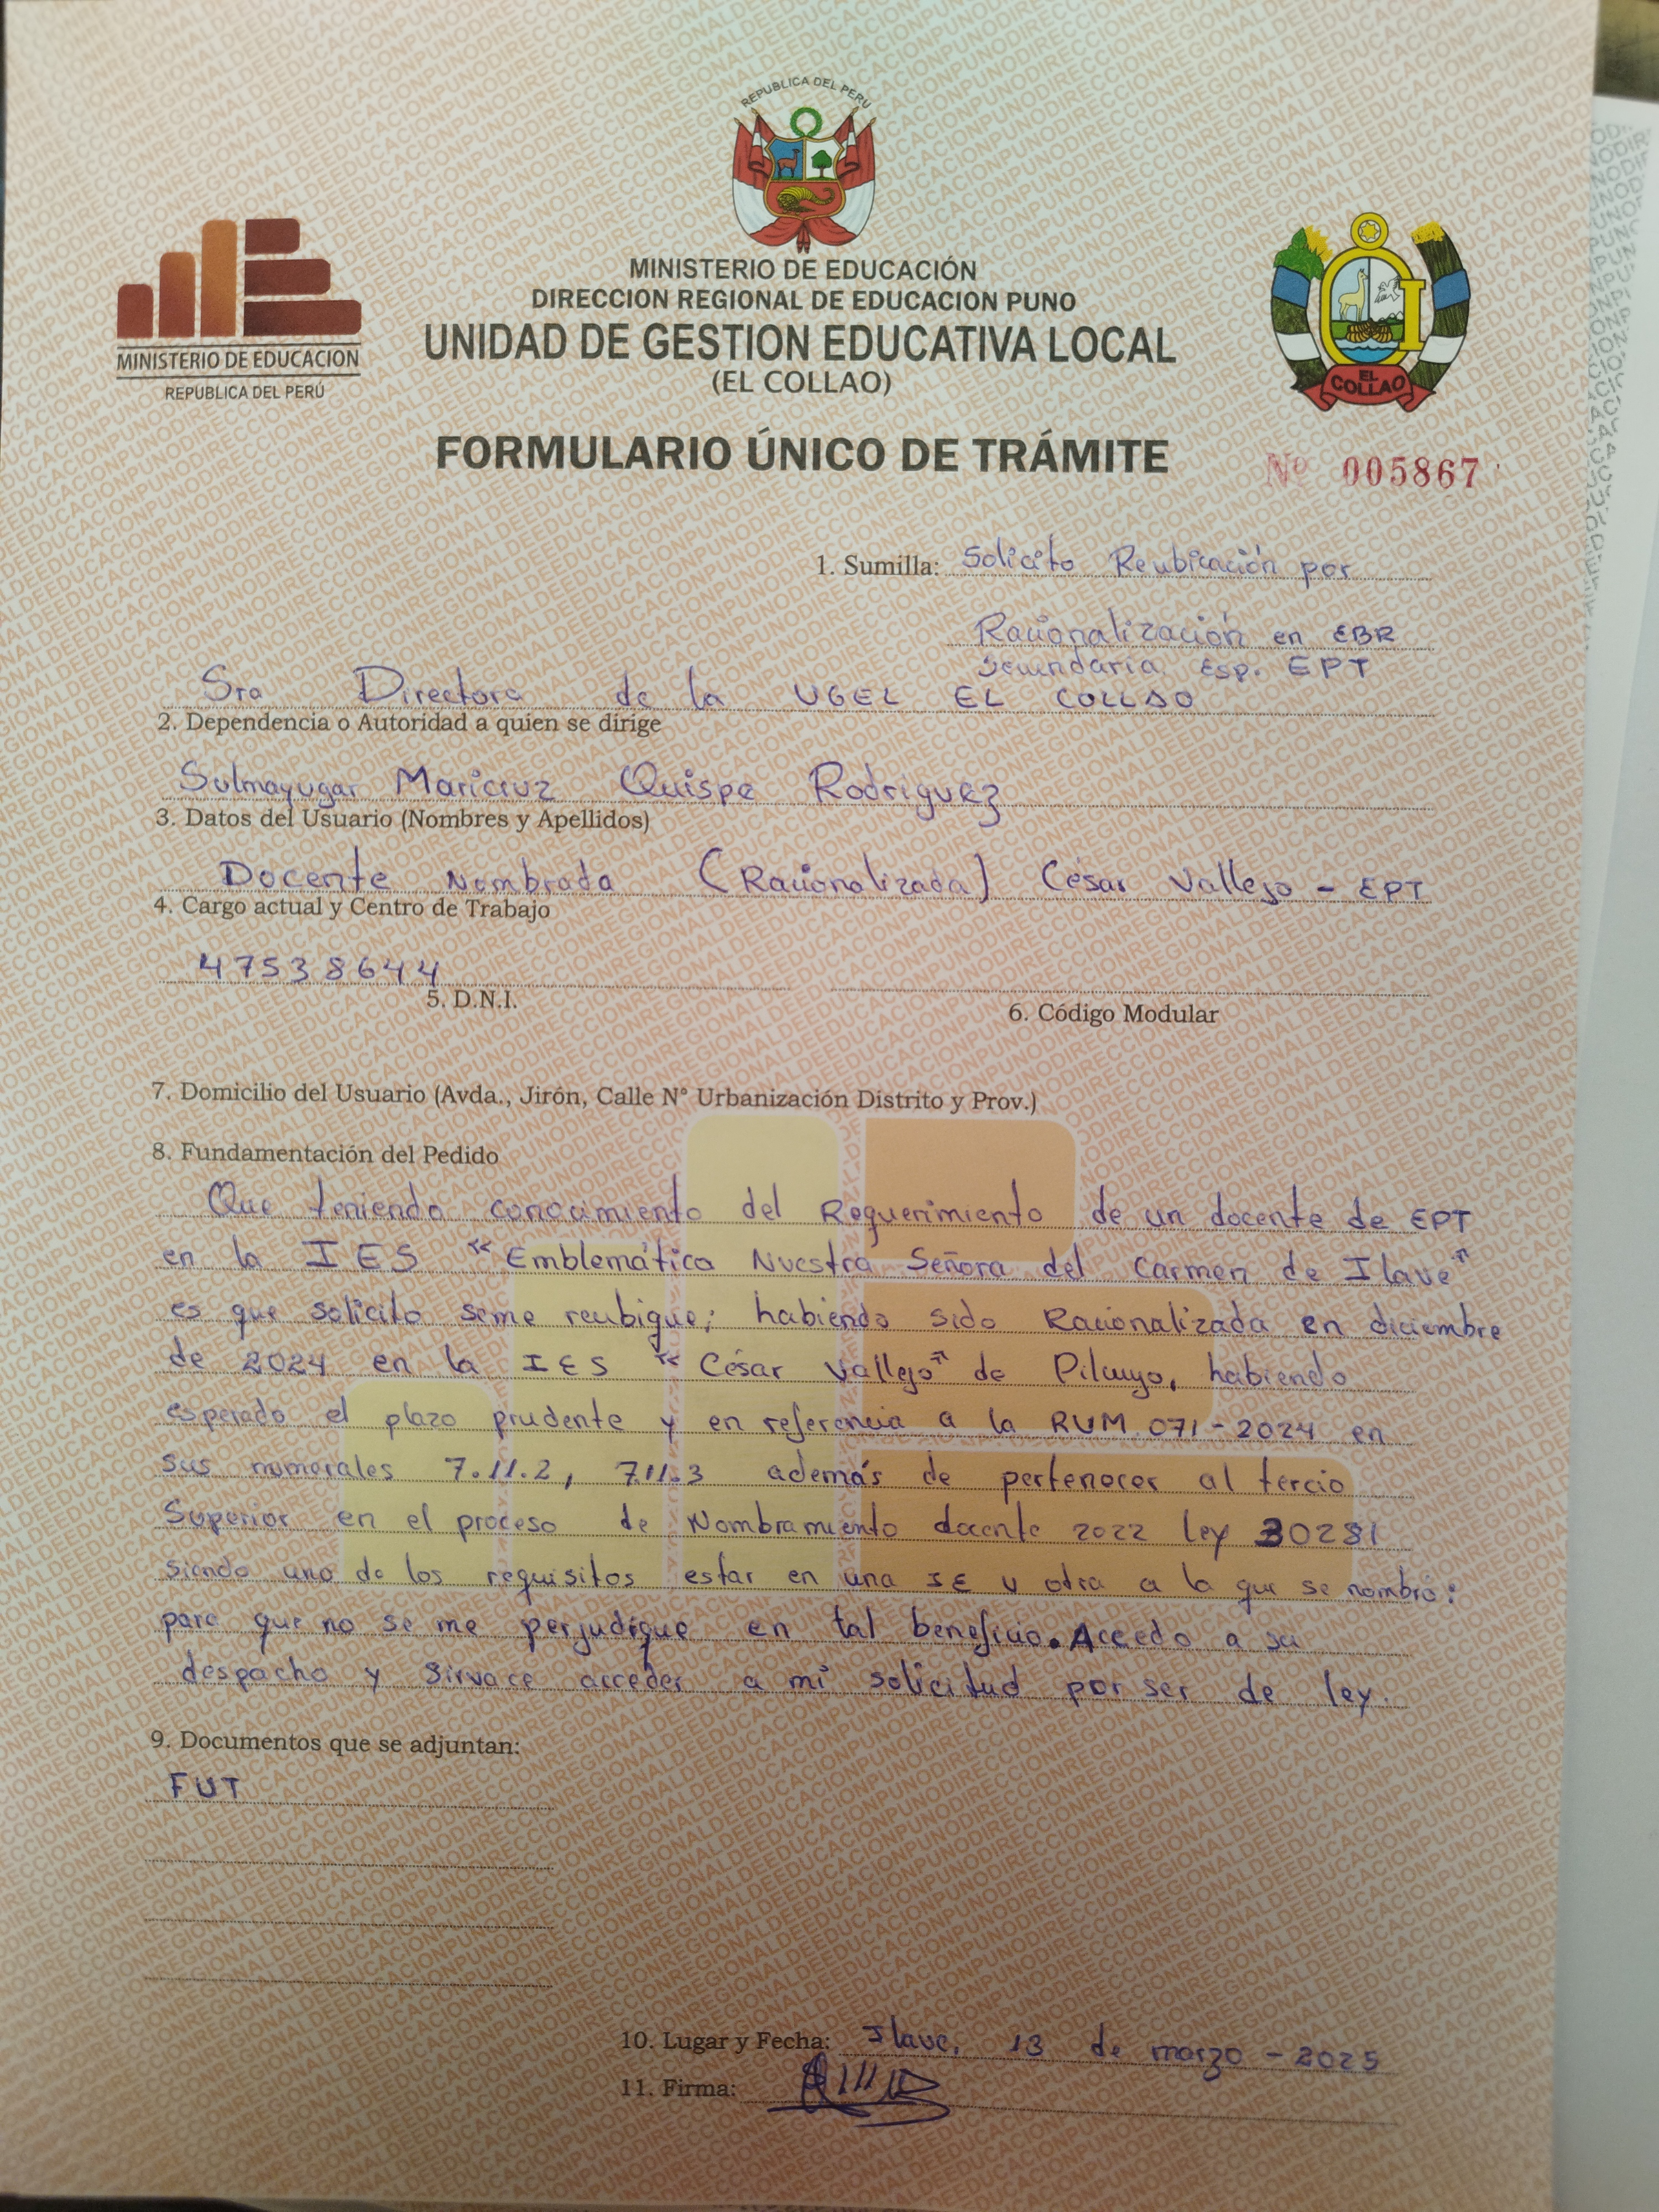 REPUBLICA DEL PERU
MINISTERIO DE EDUCACION
REPUBLICA DEL PERÚ
MINISTERIO DE EDUCACIÓN
DIRECCION REGIONAL DE EDUCACION PUNO
UNIDAD DE GESTION EDUCATIVA LOCAL
(EL COLLAO)
EL COLLAO
FORMULARIO ÚNICO DE TRÁMITE
Nº 005867
1. Sumilla: Solicito Reubicación por
Racionalización en EBR
Secundaria Esp. EPT
Sra Directora de la UGEL EL COLLAO
2. Dependencia o Autoridad a quien se dirige
Sulmayugar Maricruz Quispe Rodriguez
3. Datos del Usuario (Nombres y Apellidos)
Docente Nombrada (Racionalizada) César Vallejo - EPT
4. Cargo actual y Centro de Trabajo
47538644
5. D.N.I.
6. Código Modular
7. Domicilio del Usuario (Avda., Jirón, Calle N° Urbanización Distrito y Prov.)
8. Fundamentación del Pedido
Que teniendo conocimiento del Requerimiento de un docente de EPT
en la IES "Emblemática Nuestra Señora del Carmen de Ilave"
es que solicito seme reubique; habiendo sido Racionalizada en diciembre
de 2024 en la IES "César Vallejo" de Pilcuyo, habiendo
esperado el plazo prudente y en referencia a la RVM 071-2024 en
sus numerales 7.11.2, 7.11.3 además de pertenecer al tercio
Superior en el proceso de Nombramiento docente 2022 ley 30281
siendo uno de los requisitos estar en una IE u otra a la que se nombró:
para que no se me perjudique en tal beneficio. Accedo a su
despacho y sirvace acceder a mi solicitud por ser de ley.
9. Documentos que se adjuntan:
FUT
10. Lugar y Fecha: Ilave, 13 de marzo - 2025
11. Firma: